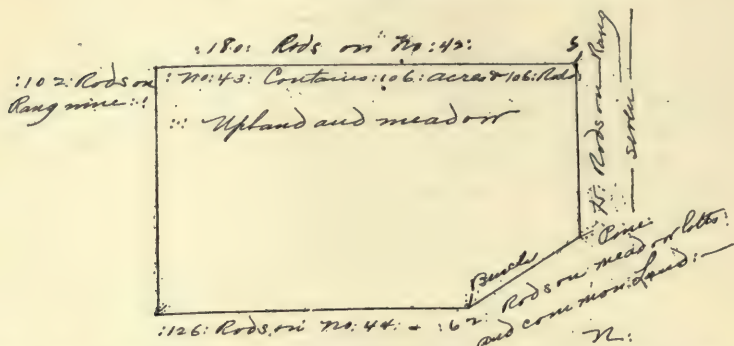 :180: Rods on No:42: S
:102: Rods on
Rang nine ::
: No:43: Contains:106: acres & 106: Rods
::: Upland and meadow
Rods on Rang
seven
Pine:
:126: Rods on No:44: & :62: Rods on meadow lotts:
and common Land:
N: